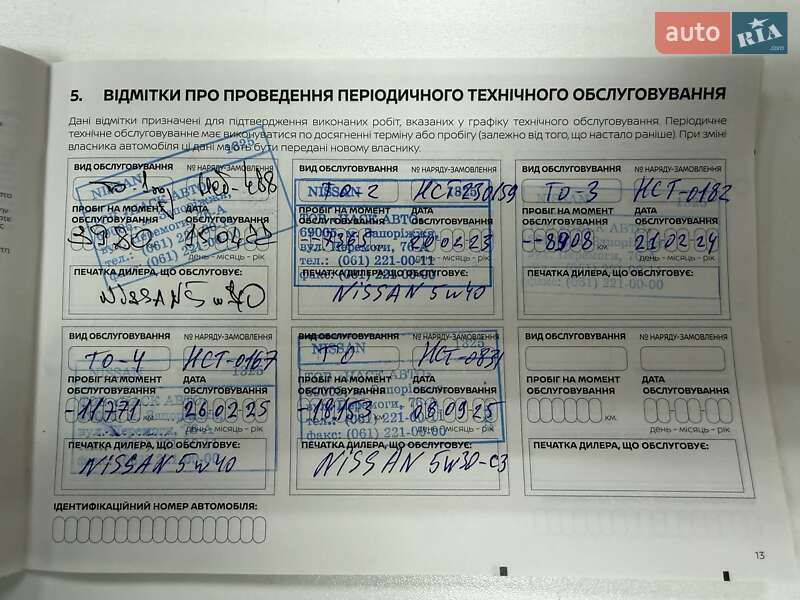 auto RIA .com
5. ВІДМІТКИ ПРО ПРОВЕДЕННЯ ПЕРІОДИЧНОГО ТЕХНІЧНОГО ОБСЛУГОВУВАННЯ
Дані відмітки призначені для підтвердження виконаних робіт, вказаних у графіку технічного обслуговування. Періодичне
технічне обслуговуванне має виконуватися по досягненні терміну або пробігу (залежно від того, що настало раніше). При зміні
власника автомобіля ці дані мають бути передані новому власнику.
ВИД ОБСЛУГОВУВАННЯ № НАРЯДУ-ЗАМОВЛЕННЯ
NISSAN 1325
ПРОБІГ НА МОМЕНТ ОБСЛУГОВУВАННЯ
ДАТА ОБСЛУГОВУВАННЯ
день – місяць – рік
тел.: (061) 221-00-11
ПЕЧАТКА ДИЛЕРА, ЩО ОБСЛУГОВУЄ:
NISSAN 5w40
ВИД ОБСЛУГОВУВАННЯ № НАРЯДУ-ЗАМОВЛЕННЯ
ТО-2
NISSAN
ПРОБІГ НА МОМЕНТ ОБСЛУГОВУВАННЯ
ДАТА ОБСЛУГОВУВАННЯ
20 02 23
69005, м. Запоріжжя,
вул. Перемоги,
тел.: (061) 221-00-11
факс: (061) 221-00-00
день – місяць – рік
ПЕЧАТКА ДИЛЕРА, ЩО ОБСЛУГОВУЄ:
NISSAN 5w40
ВИД ОБСЛУГОВУВАННЯ № НАРЯДУ-ЗАМОВЛЕННЯ
ТО-3 НСТ-0182
ПРОБІГ НА МОМЕНТ ОБСЛУГОВУВАННЯ
ДАТА ОБСЛУГОВУВАННЯ
--8908 км. 21-02-24
день – місяць – рік
ПЕЧАТКА ДИЛЕРА, ЩО ОБСЛУГОВУЄ:
факс: (061) 221-00-00
ВИД ОБСЛУГОВУВАННЯ № НАРЯДУ-ЗАМОВЛЕННЯ
ТО-4 НСТ-0167
NISSAN 1325
ПРОБІГ НА МОМЕНТ ОБСЛУГОВУВАННЯ
ДАТА ОБСЛУГОВУВАННЯ
-11771 км. 26-02-25
день – місяць – рік
ПЕЧАТКА ДИЛЕРА, ЩО ОБСЛУГОВУЄ:
NISSAN 5w40
ВИД ОБСЛУГОВУВАННЯ № НАРЯДУ-ЗАМОВЛЕННЯ
ТО
NISSAN 1325
ПРОБІГ НА МОМЕНТ ОБСЛУГОВУВАННЯ
ДАТА ОБСЛУГОВУВАННЯ
-18153 км. 08-09-25
день – місяць – рік
факс: (061) 221-00-00
ПЕЧАТКА ДИЛЕРА, ЩО ОБСЛУГОВУЄ:
NISSAN 5w30-C3
ВИД ОБСЛУГОВУВАННЯ № НАРЯДУ-ЗАМОВЛЕННЯ
ПРОБІГ НА МОМЕНТ ОБСЛУГОВУВАННЯ
ДАТА ОБСЛУГОВУВАННЯ
км.
день – місяць – рік
ПЕЧАТКА ДИЛЕРА, ЩО ОБСЛУГОВУЄ:
ІДЕНТИФІКАЦІЙНИЙ НОМЕР АВТОМОБІЛЯ:
13